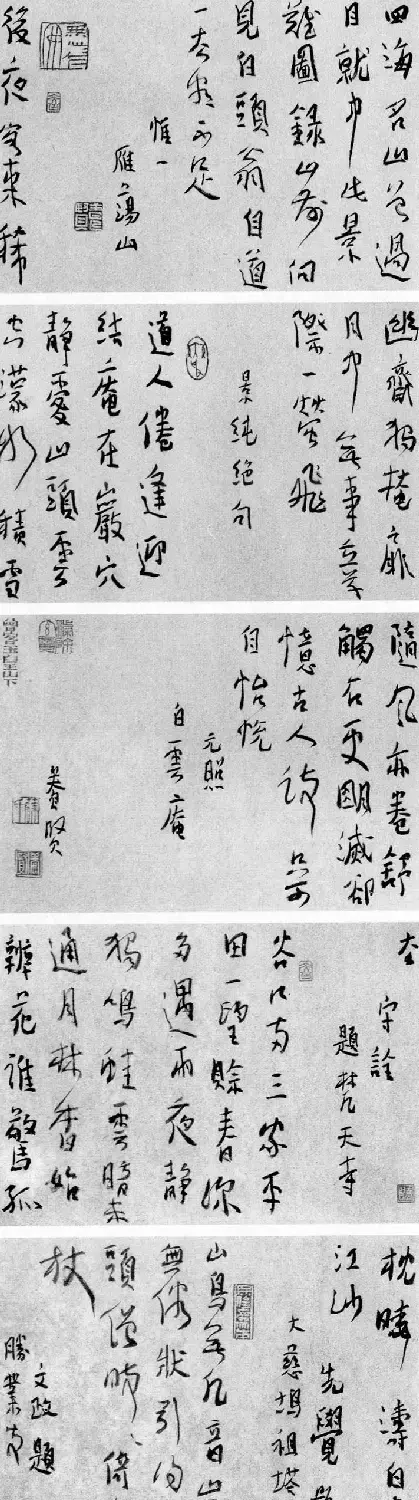 四海名山曾過
目就中此景
難圖錄山前向
見白頭翁自道
一生看不足
惟一
雁蕩山
後夜客來稀
幽齋獨掩扉
月中無事立草
際一螢飛
景純絕句
道人倦逢迎
結庵在巖穴
靜愛山頭雲
積雪
隨風亦卷舒
觸石更明滅卻
憶古人詩只可
自怡悅
元照
白雲庵
養賢
守詮
題梵天寺
谷口兩三家平
田一望賒春深
多遇雨夜靜
獨鳴蛙雲暗未
通月林香始
辨花誰驚孤
枕曉濤白
江沙
先覺
大慈塢祖塔
山鳥無凡音山
無俗狀引得
頭僧時時倚
杖
文政題
勝業寺